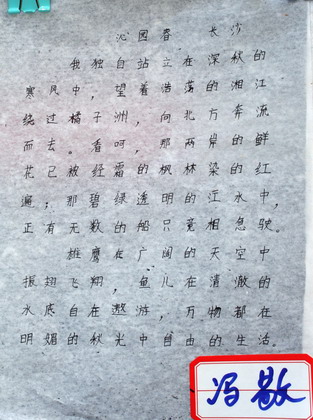 沁园春 长沙
我独自站立在深秋的
寒风中，望着浩荡的湘江
绕过橘子洲，向北方奔流
而去。看呵，那两岸的鲜
花已被经霜的枫林染的红
遍；那碧绿透明的江水中，
正有无数的船只竞相急驶。
雄鹰在广阔的天空中
振翅飞翔，鱼儿在清澈的
水底自在遨游，万物都在
明媚的秋光中自由的生活。
冯敬